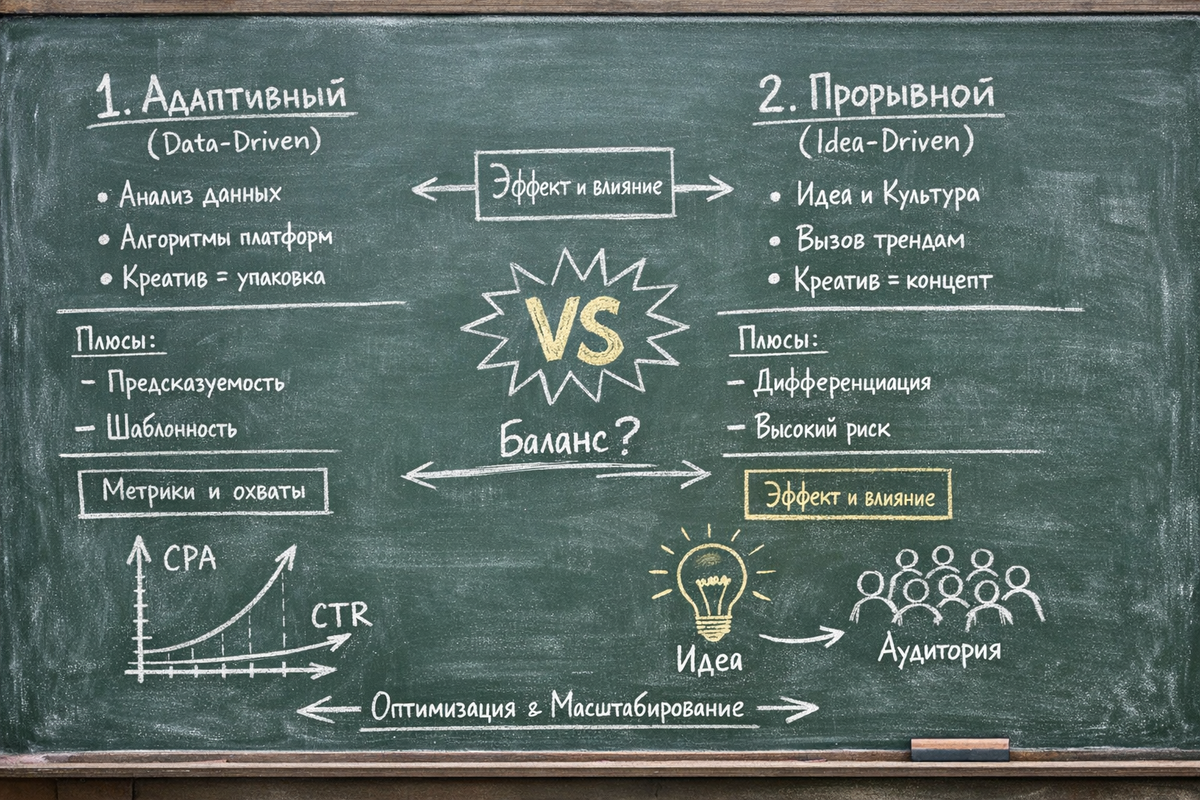 1. Адаптивный
(Data-Driven)
• Анализ данных
• Алгоритмы платформ
• Креатив = упаковка
Плюсы:
– Предсказуемость
– Шаблонность
Метрики и охваты
CPA
CTR
Эффект и влияние
VS
Баланс?
2. Прорывной
(Idea-Driven)
• Идея и Культура
• Вызов трендам
• Креатив = концепт
Плюсы:
– Дифференциация
– Высокий риск
Эффект и влияние
Идея
Аудитория
Оптимизация & Масштабирование